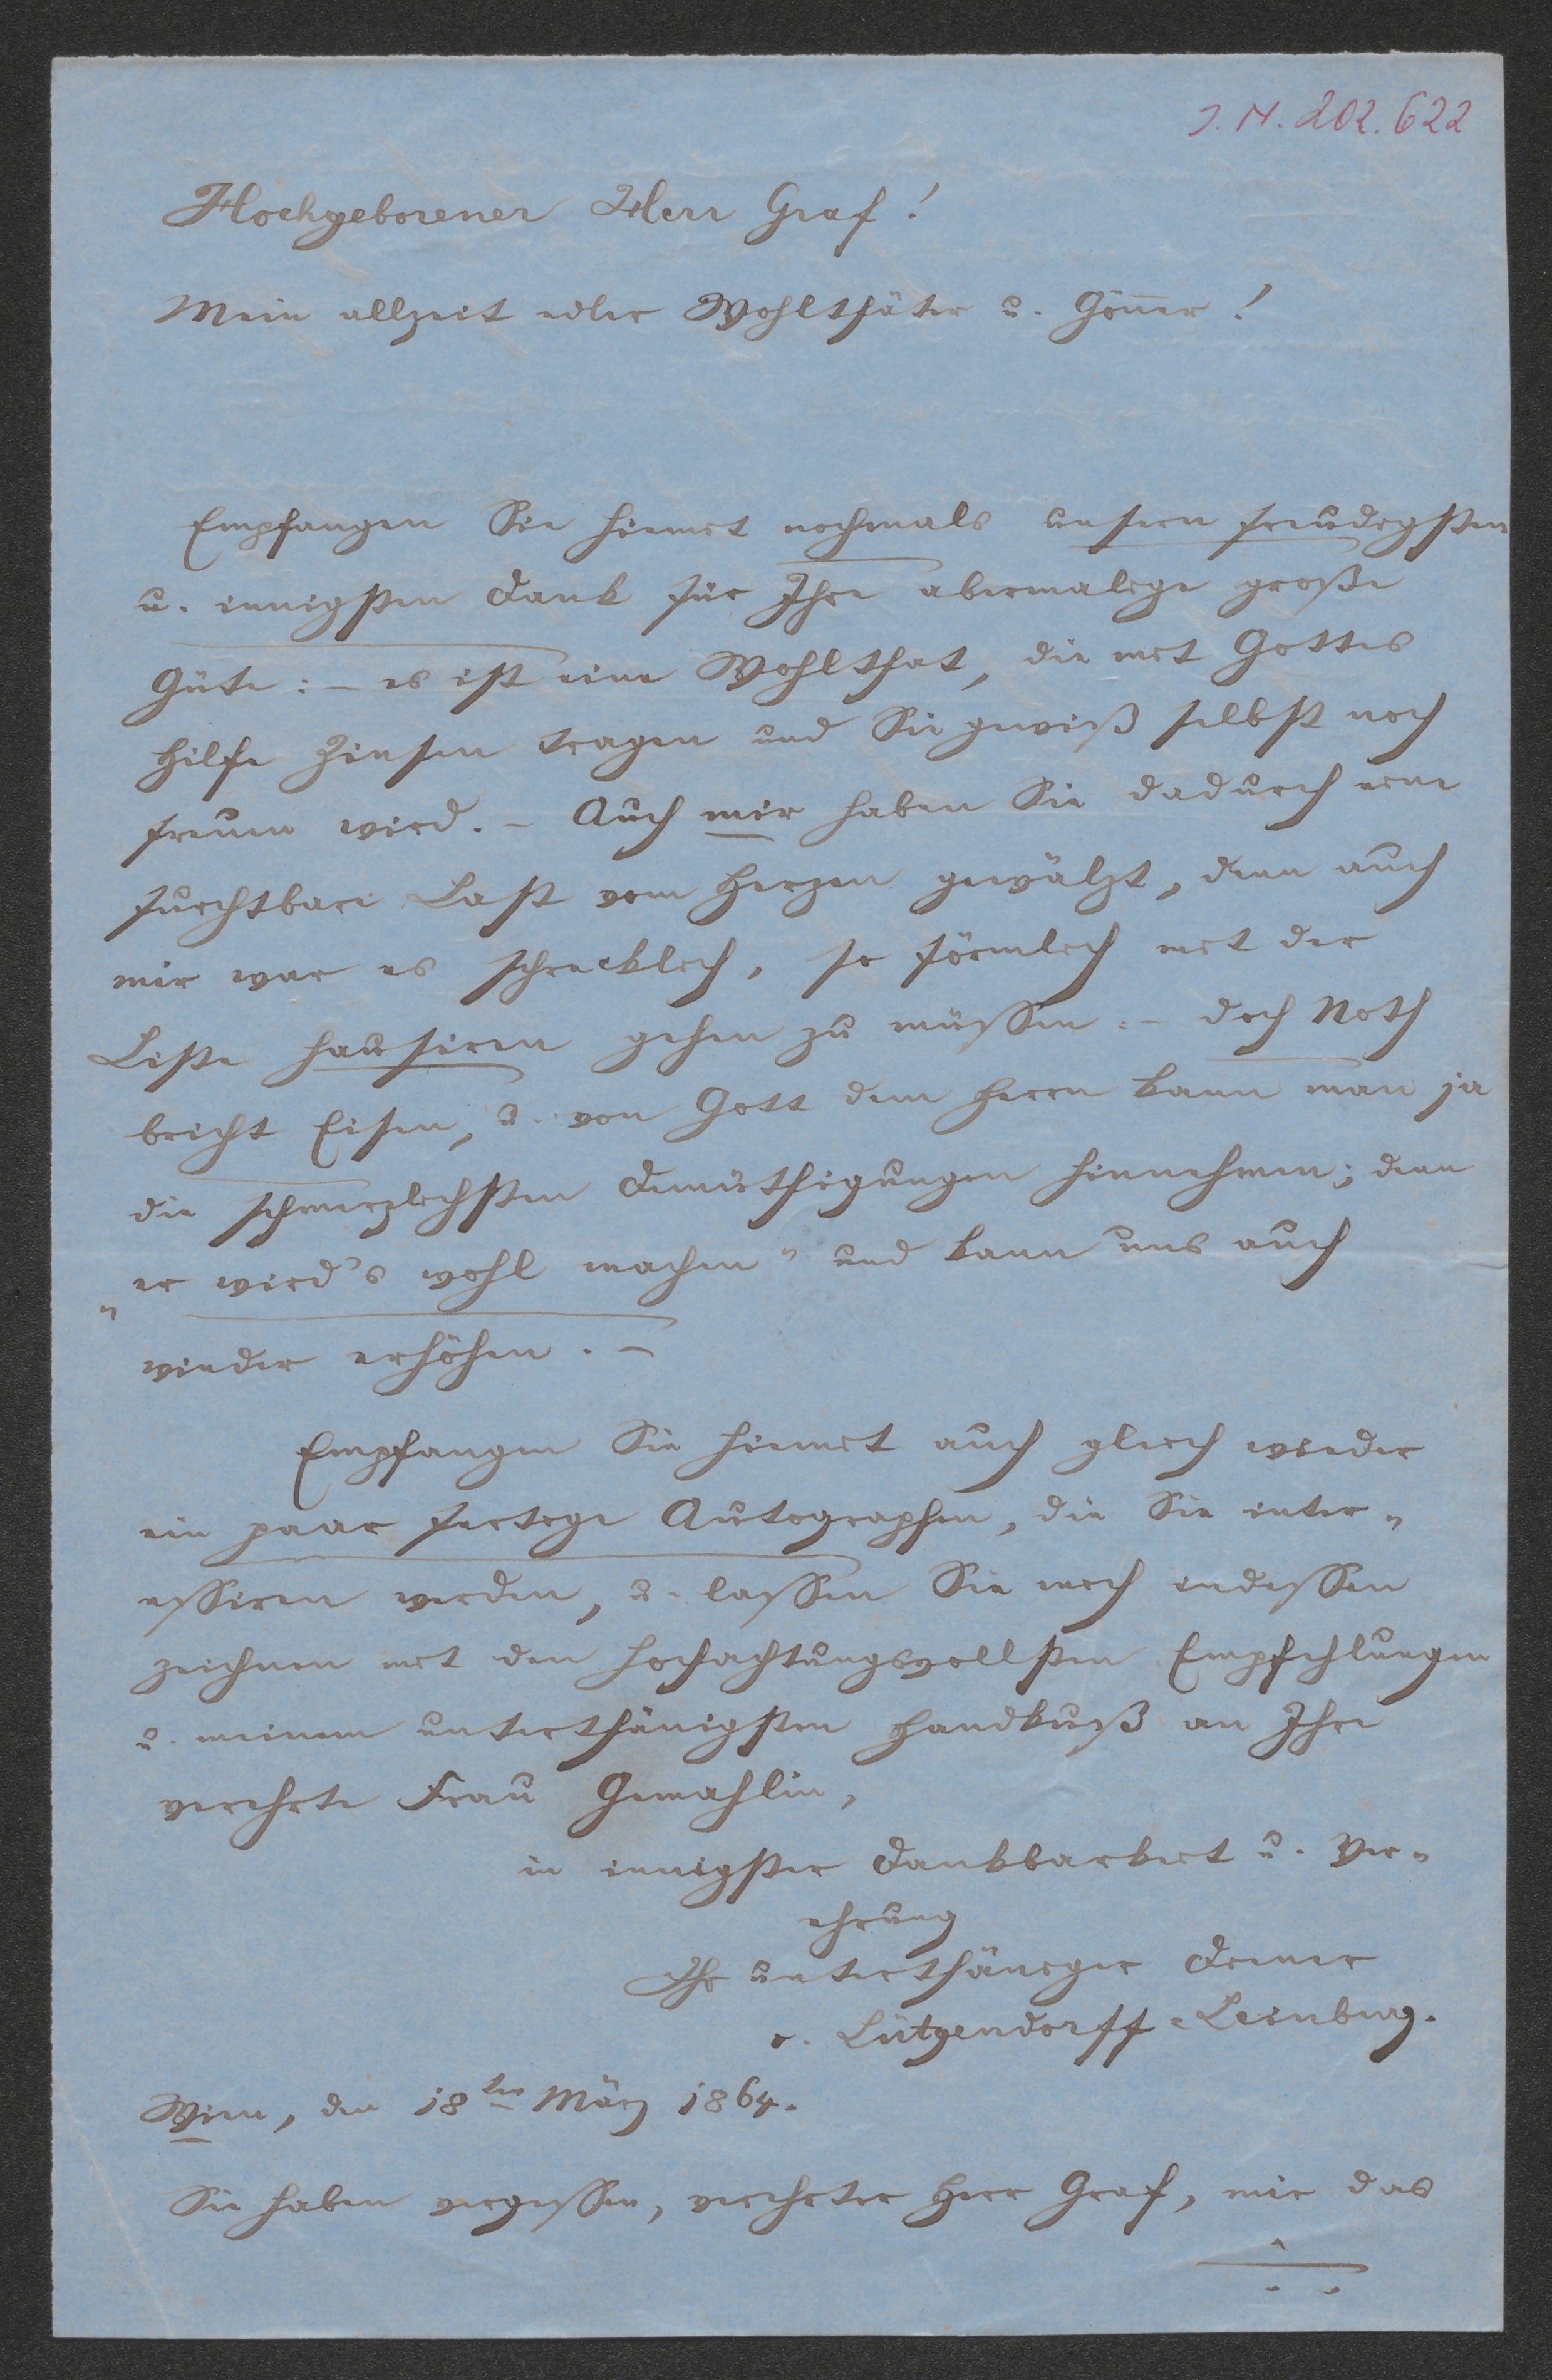 J. N. 202.622
Hochgeborener Herr Graf!
Mein allzeit edler Wohlthäter u. Gön̄er!
Empfangen Sie hiemit nochmals unsern freudigsten
u. innigsten Dank für Ihre abermalige große
Güte: – es ist eine Wohlthat, die mit Gottes
Hilfe Zinsen tragen und Sie gewiß selbst noch
freuen wird. – Auch mir haben Sie dadurch eine
furchtbare Last vom Herzen gewälzt, denn auch
mir war es schrecklich, so förmlich mit der
Liste hausiren gehen zu müssen: – doch Noth
bricht Eisen, u. von Gott dem Herrn kann man ja
die schmerzlichsten Demüthigungen hinnehmen; denn
„er wird's wohl machen" und kann uns auch
wieder erhöhen. –
Empfangen Sie hiemit auch gleich wieder
ein paar fertige Autographen, die Sie inter-
essiren werden, u. lassen Sie mich indessen
zeichnen mit den hochachtungsvollsten Empfehlungen
u. meinem unterthänigsten Handkuß an Ihre
verehrte Frau Gemahlin,
in innigster Dankbarkeit u. Ver-
ehrung
Ihr unterthäniger Diener
v. Lützendorff-Leinburg.
Wien, den 18ten März 1864.
Sie haben vergessen, verehrter Herr Graf, mir das